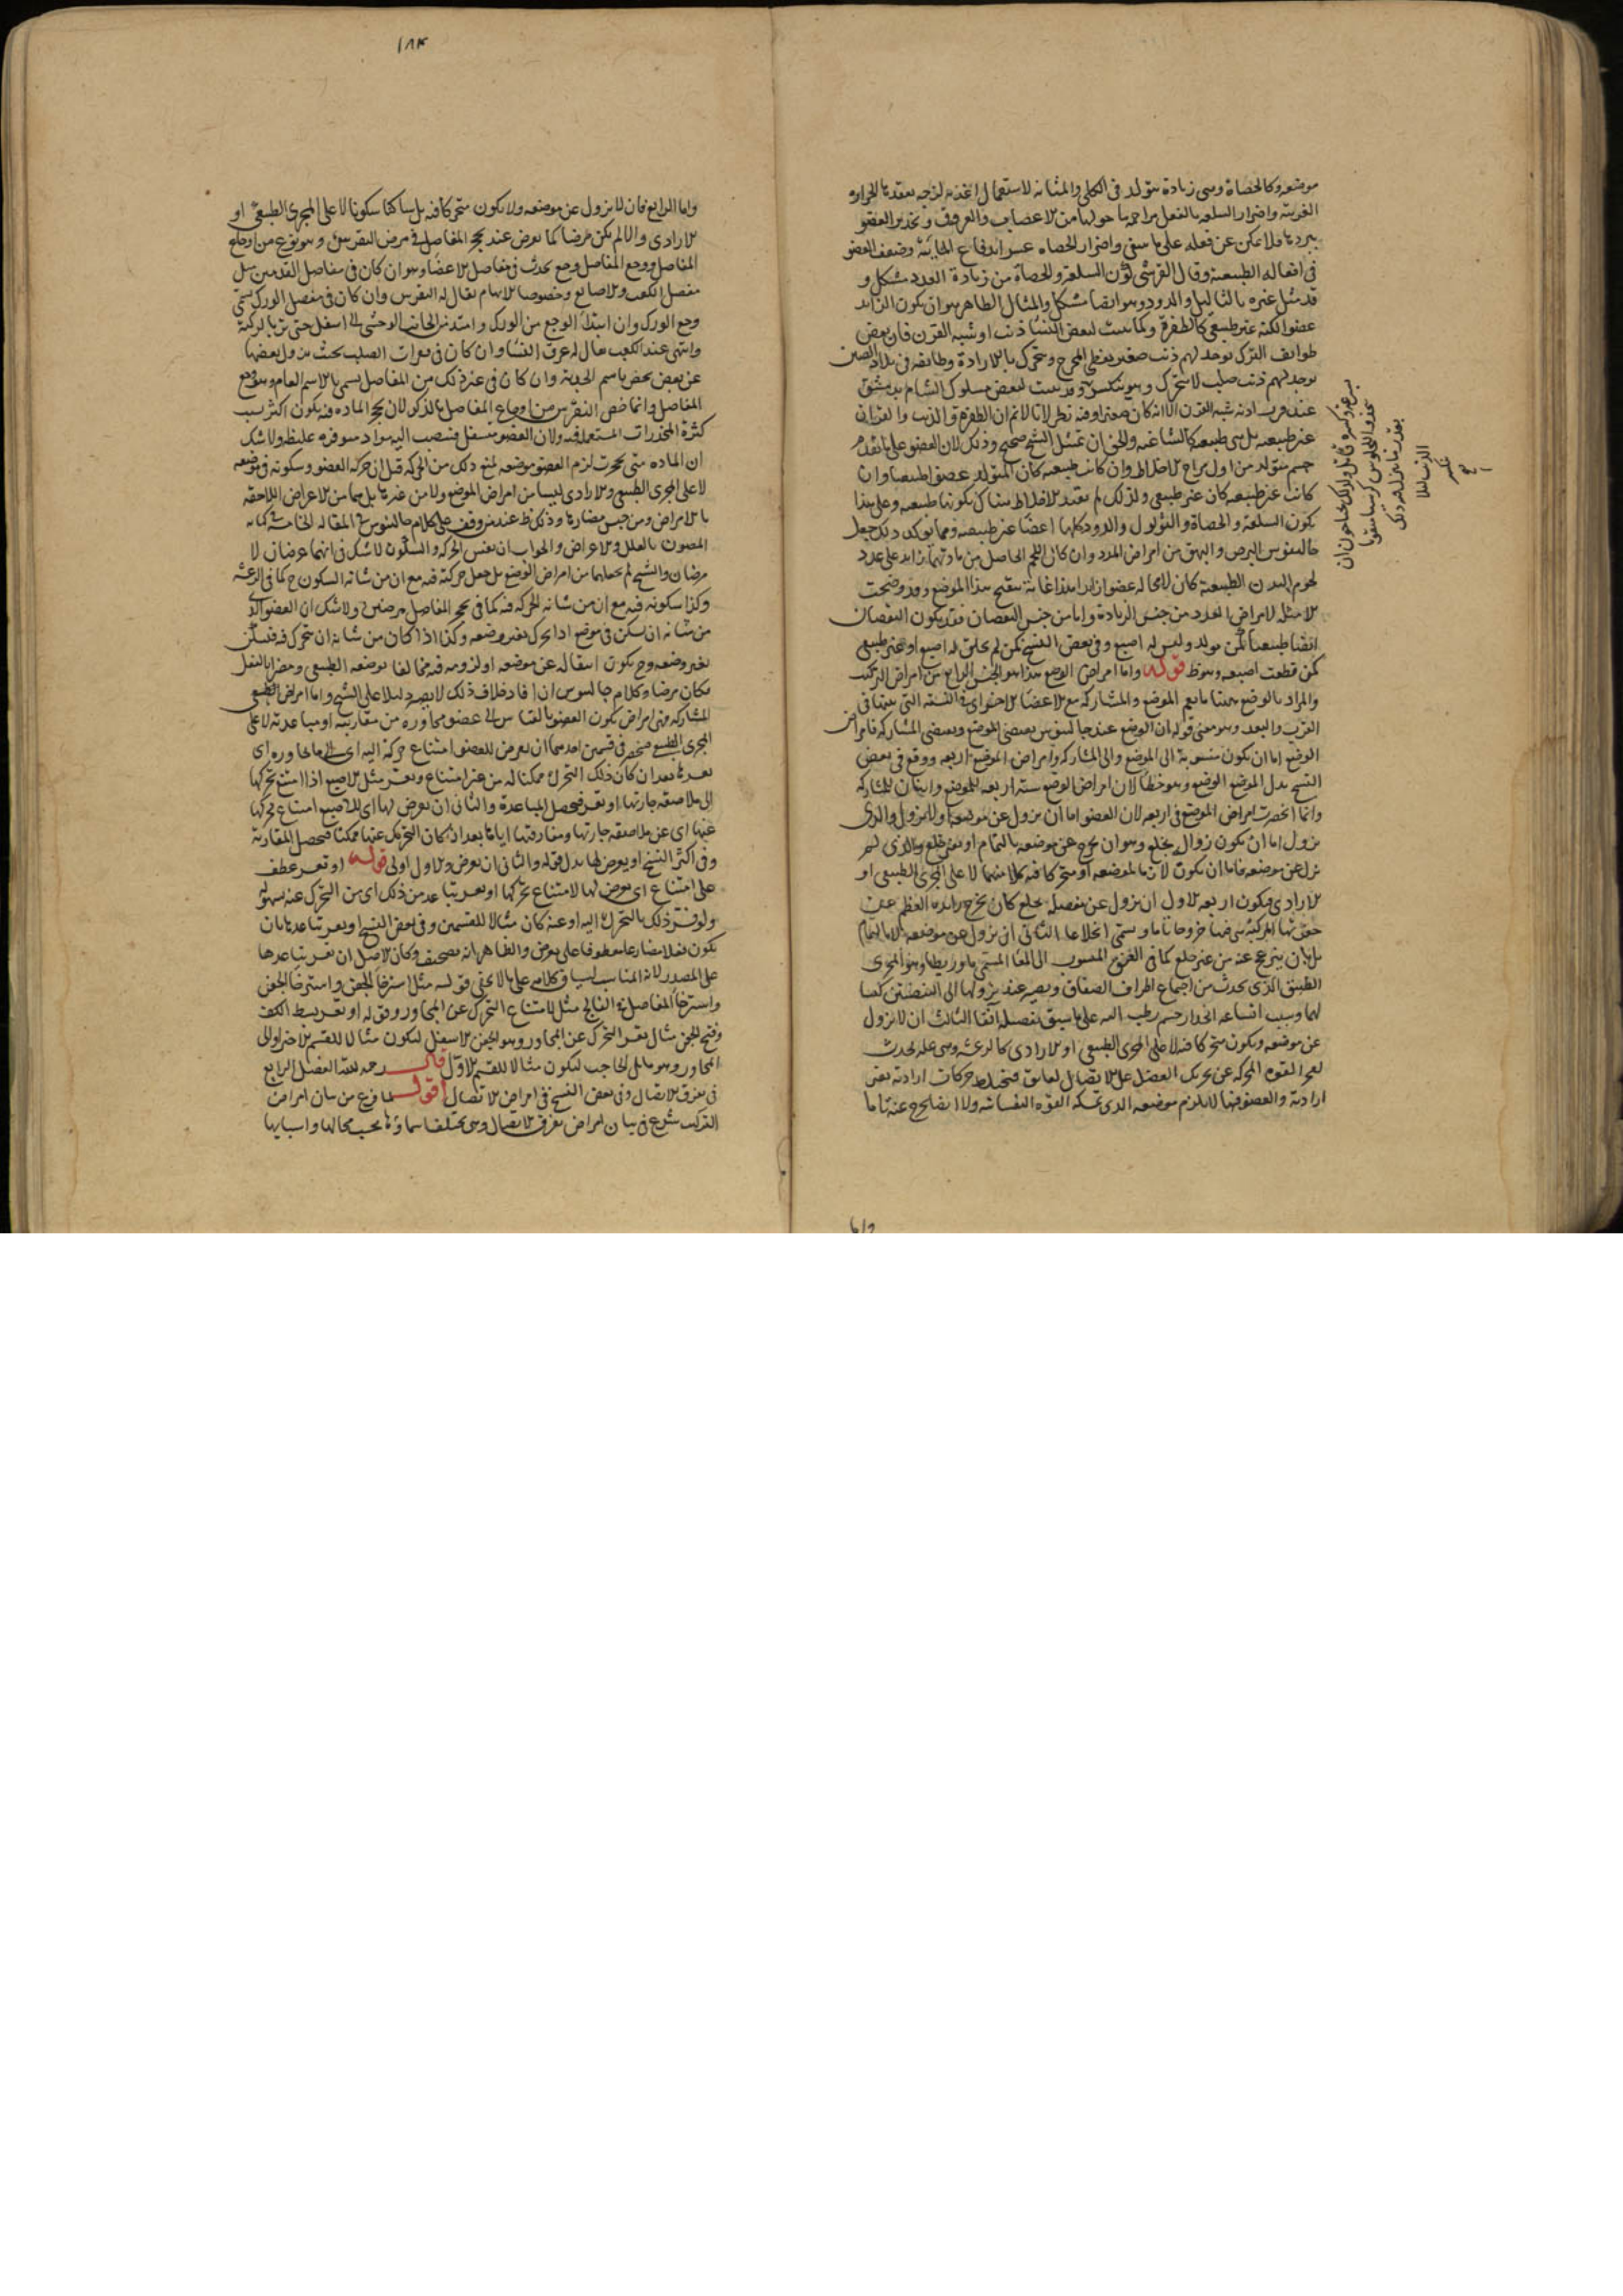 موضعه وكالحصاة وهى زيادة يتولد فى الكلى والمثانة لاستعمال اغذية لزجة يعقدها الحرارة
الغريبة واضرار السلعة بالفعل مزاحمة ما حولها من الاعصاب والعروق وتخدير العضو
ببردها فلا يمكن عن فعله على ما ينبغى واضرار الحصاه عسر اندفاع المائية وضعف العضو
فى افعاله الطبيعية وقال القرشى كون السلعة والحصاة من زيادة العدد مشكل و
قد مثل غيره بالثاليل والدود وهو ايضا مشكل والمثال الظاهر هو ان يكون الزايد
عضوا لكنه غير طبيعى كالظفرة وكما نبت لبعض النساء ذنب او شبه القرن فان بعض
طوايف الترك يوجد لهم ذنب صغير يغطى المخرج ويتحرك بالارادة وطايفة فى بلاد الصين
يوجد لهم ذنب صلب لا يتحرك وهو ينكسر وقد نبت لبعض ملوك الشام بدمشق
عند قرب اذنه شبه القرن الا انه كان صغيرا وفيه نظر لانا لانم ان الظفرة والذنب والقرنان
غير طبيعية بل هى طبيعية كالشاغية والحق ان تمثيل الشيخ صحيح وذلك لان العضو على ما تقدم
جسم متولد من اول مزاج الاخلاط وان كانت طبيعية كان المتولد عضوا طبيعيا وان
كانت غير طبيعية كان غير طبيعى ولذلك لم يقيد الاخلاط هناك بكونها طبيعية وعلى هذا
يكون السلعة والحصاة والثؤلول والدود كلها اعضاء غير طبيعية ومما يؤكد ذلك جعل
جالينوس البرص والبهق من امراض العدد وان كان اللحم الحاصل من مادتهما زايد على عدد
لحوم البدن الطبيعية كان لا محالة عضوا زايدا هذا غاية تنقيح هذا الموضع وقد وضحت
الامثلة لامراض العدد من جنس الزيادة واما من جنس النقصان فقد يكون النقصان
ايضا طبيعيا كمن يولد وليس له اصبع وفى بعض النسخ كمن لم يخلق له اصبع او غير طبيعى
كمن قطعت اصبعه وهو ظ قوله واما امراض الوضع هذا هو الجنس الرابع من امراض التركيب
والمراد بالوضع ههنا ما يعم الموضع والمشاركة مع الاعضاء الاخر اى فى النسبة التى بينها فى
القرب والبعد وهو معنى قوله ان الوضع عند جالينوس يقتضى الموضع ويقتضى المشاركة فامراض
الوضع اما ان يكون منسوبة الى الموضع والى المشاركة وامراض الموضع اربعة ووقع فى بعض
النسخ بدل الموضع الوضع وهو خطا لان امراض الوضع ستة اربعة للموضع واثنان للمشاركة
وانما انحصرت امراض الموضع فى اربعة لان العضو اما ان يزول عن موضعه او لا يزول والذى
يزول اما ان يكون زواله بخلع وهو ان يخرج عن موضعه بالتمام او بغير خلع والذى لم
يزل عن موضعه فاما ان يكون لازما لموضعه او متحركا فيه كلا منهما لا على المجرى الطبيعى او
الارادى فيكون اربعة الاول ان يزول عن مفصله بخلع كان يخرج زايدة العظم عن
حفرتها المركبة هى فيها خروجا تاما ويسمى انخلاعا الثانى ان يزول عن موضعه لا بالتمام
بل بان ينزعج عنه من غير خلع كما فى الفتق المنسوب الى المعا المسمى باوريطا وهو المجرى
الضيق الذى يحدث من اجتماع اطراف الصفاق ويصير عند نزولها الى البيضتين كيسا
لهما وسبب اتساعه انحدار جسم رطب اليه على ما سبق تفصيله آنفا الثالث ان لا يزول
عن موضعه ويكون متحركا فيه لا على المجرى الطبيعى او الارادى كالرعشة وهى علة تحدث
لعجز القوة المحركة عن تحريك العضل على الاتصال لعايق فيختلط حركات ارادية بغير
ارادية والعضو فيها لا يلزم موضعه الذى تمسكه القوة النفسانية ولا ايضا يخرج عنه تاما
الذنب
ينكسر
١٨٣
واما الرابع فان لا يزول عن موضعه ولا يكون متحركا فيه بل ساكنا سكونا لا على المجرى الطبيعى او
الارادى والا لم يكن مرضا كما يعرض عند تحجر المفاصل فى مرض النقرس وهو نوع من اوجاع
المفاصل ووجع المفاصل وجع يحدث فى مفاصل الاعضاء وهو ان كان فى مفاصل القدمين مثل
مفصل الكعب والاصابع وخصوصا الابهام يقال له النقرس وان كان فى مفصل الورك يسمى
وجع الورك وان ابتدا الوجع من الورك وامتد من الجانب الوحشى الى اسفل حتى نزل بالركبة
وانتهى عند الكعب يقال له عرق النسا وان كان فى فقرات الصلب بحيث يزول بعضها
عن بعض يخص باسم الحدبة وان كان فى غير ذلك من المفاصل يسمى بالاسم العام وهو وجع
المفاصل وانما خص النقرس من اوجاع المفاصل بالذكر لان تحجر المادة فيه يكون اكثر بسبب
كثرة المخدرات المستعملة فيه ولان العضو متسفل فينصب اليه مواد متوفرة غليظة ولا شك
ان المادة متى تحجرت لزم العضو موضعه لمنع ذلك من الحركة قيل ان حركة العضو وسكونه فى موضعه
لا على المجرى الطبيعى والارادى ليسا من امراض الموضع ولا من غيرها بل هما من الاعراض اللاحقة
بالامراض ومن جنس مضارها وذلك ظ عند من وقف على كلام جالينوس فى المقالة الخامسة من كتابه
المعنون بالعلل والاعراض والجواب ان نفس الحركة والسكون لا شك فى انهما عرضان لا
مرضان والشيخ لم يجعلهما من امراض الوضع بل جعل حركته فيه مع ان من شانه السكون ح كما فى الرعشة
وكذا سكونه فيه مع ان من شانه الحركة فيه كما فى تحجر المفاصل مرضين ولا شك ان العضو الذى
من شانه ان يسكن فى موضع اذا تحرك يغير وضعه وكذا اذا كان من شانه ان يتحرك فيه فسكن
يغير وضعه وح يكون انتقاله عن موضعه او لزومه فيه مخالفا لموضعه الطبيعى ومضرا بالفعل
فكان مرضا وكلام جالينوس ان افاد خلاف ذلك لا يصير دليلا على الشيخ واما امراض
المشاركة فهى امراض يكون العضو بالقياس الى عضو مجاوره من مقاربته او مباعدته لا على
المجرى الطبيعى فينحصر فى قسمين احدهما ان يعرض للعضو امتناع حركة اليه اى الى ما يجاوره اى
بعدها بعد ان كان ذلك التحرك ممكنا له من غير امتناع وتعسر مثل الاصبع اذا امتنع تحركها
الى ملاصقة جارتها او تعسر فيحصل المباعدة والثانى ان يعرض لها اى للاصبع امتناع تحركها
عنها اى عن ملاصقة جارتها ومفارقتها اياها بعد ان كان التحريك عنها ممكنا فيحصل المقاربة
وفى اكثر النسخ او يعرض لها بدل قوله والثانى ان يعرض والاول اولى قوله او تعسر عطف
على امتناع اى يعرض لها لامتناع تحركها او تعسر تباعد من ذلك اى من التحرك عنه بسهولة
ولو فسر ذلك بالتحرك اليه او عنه كان مثالا للقسمين وفى بعض النسخ او يعسر تباعدها بان
يكون فعلا مضارعا معطوفا على يعرض والظاهر انه تصحيف وكان الاصل ان تعسر تباعدها
على المصدر لانه المناسب لسياق كلامه على ما لا يخفى قوله مثل استرخاء الجفن واسترخاء الجفن
واسترخاء المفاصل فى الفالج مثل لامتناع التحرك عن المجاور وقوله او تعسر بسط الكف
وفتح الجفن مثال تعسر التحرك عن المجاور وهو الجفن الاسفل ليكون مثالا للقسم الاخر او الى
المجاور وهو ما يلى الحاجب ليكون مثالا للقسم الاول قال رحمه الله الفصل الرابع
فى تفرق الاتصال وفى بعض النسخ فى امراض الاتصال اقول لما فرغ من بيان امراض
التركيب شرع فى بيان امراض تفرق الاتصال وهى يختلف اسماؤها بحسب محالها واسبابها